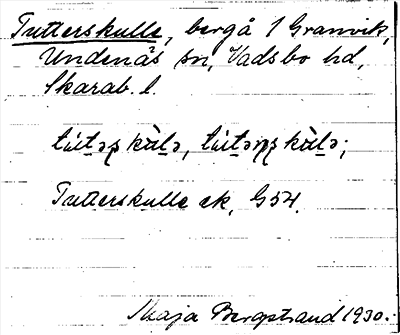 Tutterskulle, bergå 1 Granvik,
Undenäs sn, Vadsbo hd,
Skarab. l.
Tutterskulle ek, G54.
Maja Bergstrand 1930.